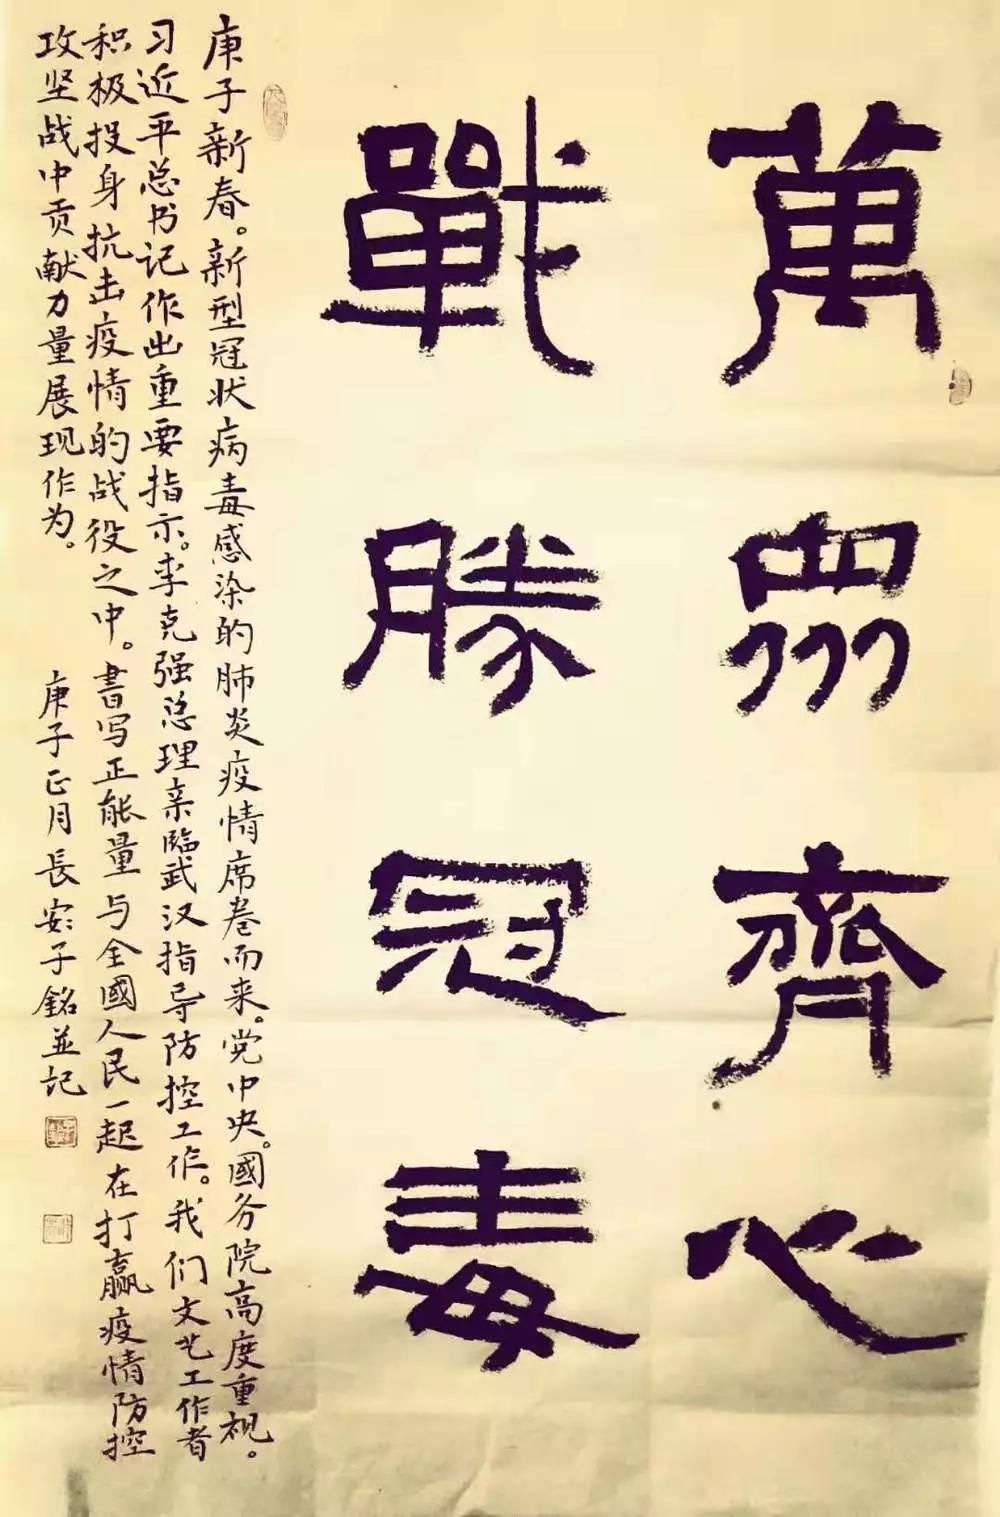 萬眾齊心
戰勝冠毒
庚子新春。新型冠状病毒感染的肺炎疫情席卷而来。党中央。國务院高度重视。
习近平总书记作出重要指示。李克强总理亲临武汉指导防控工作。我们文艺工作者
积极投身抗击疫情的战役之中。書写正能量与全國人民一起在打赢疫情防控
攻坚战中贡献力量展现作为。
庚子正月長安子銘並記